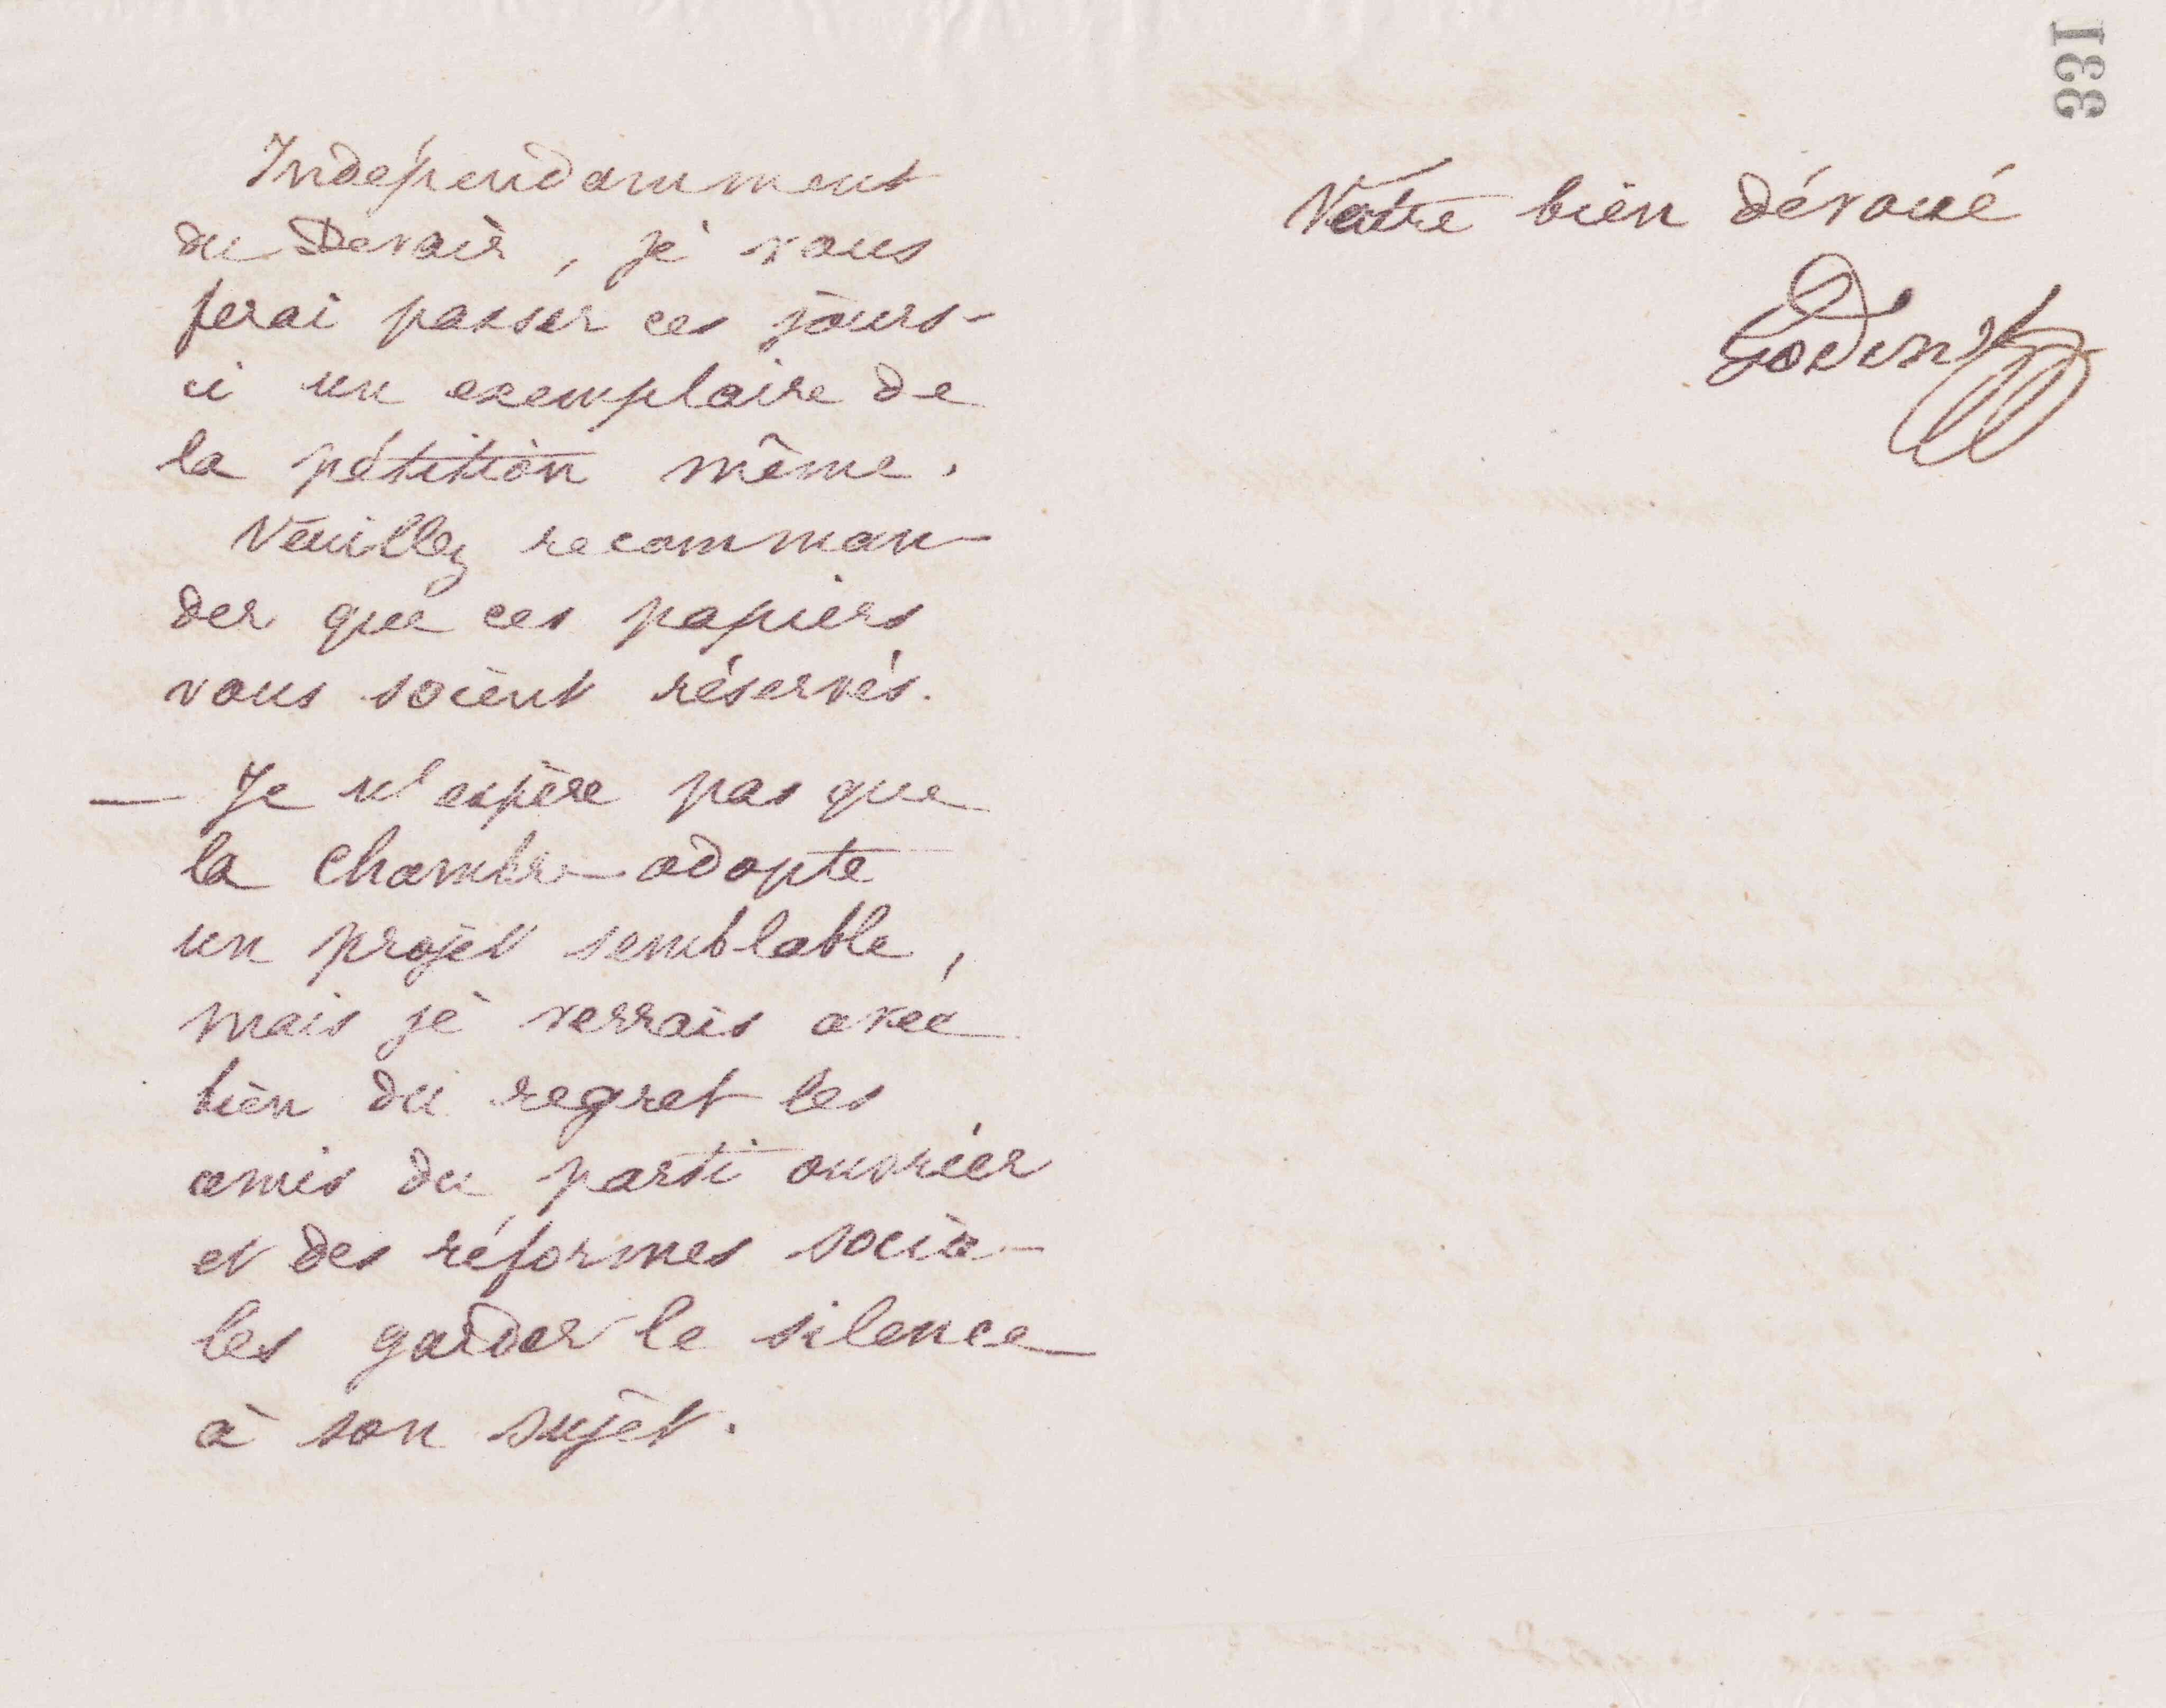 Indépendamment
du Devoir, je vous
ferai passer ces jours-
ci un exemplaire de
la pétition même.
Veuillez recomman-
der que ces papiers
vous soient réservés.
— Je n'espère pas que
la Chambre adopte
un projet semblable,
mais je verrais avec
bien du regret les
amis du parti ouvrier
et des réformes socia-
les garder le silence
à son sujet.
Votre bien dévoué
Godin
133